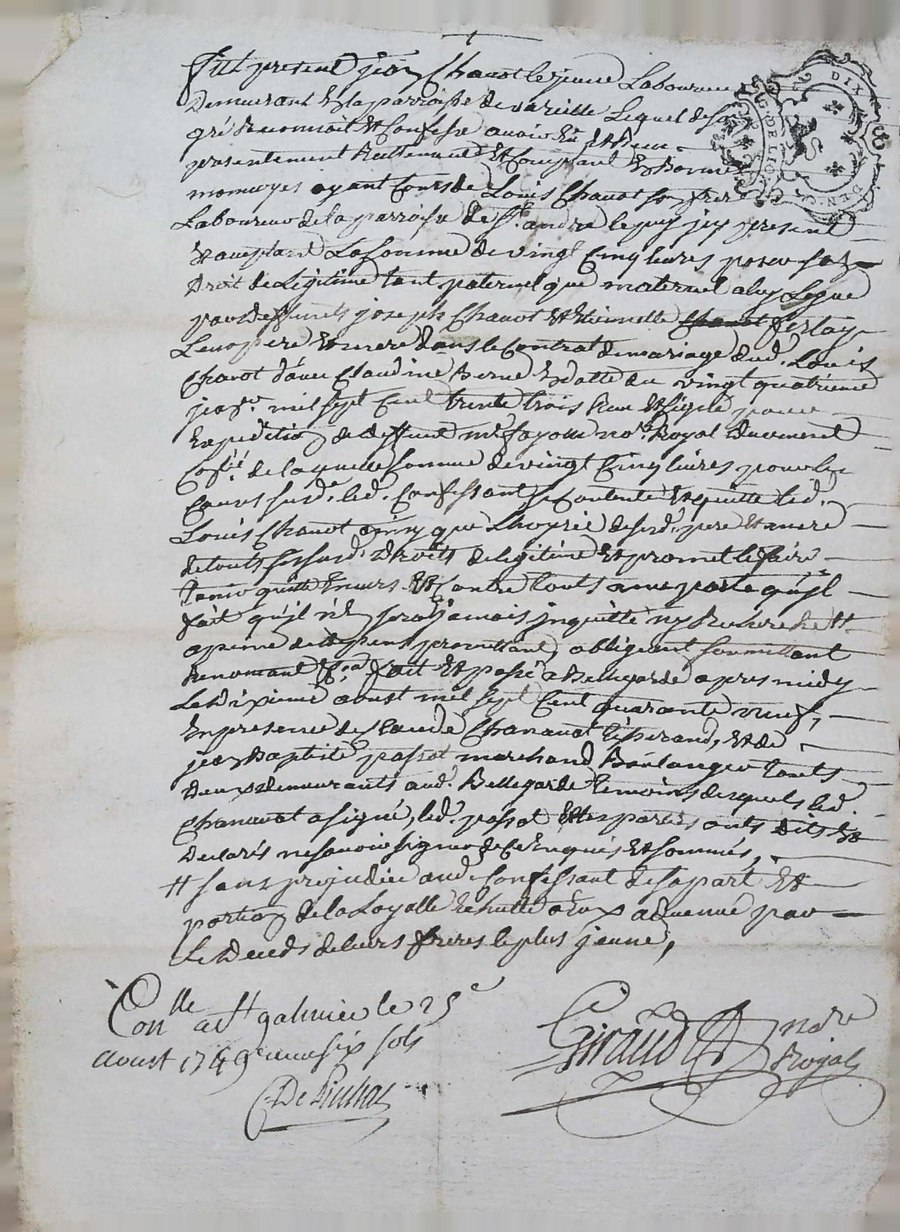 Fut present jean Chavot le jeune Laboureur
Demeurant En la parroisse de vareille Lequel de son
gré Reconnoit Et Confesse avoir Eu Et Receu
presentement Reellement Et Comptant En Bonnes
monnoyes ayant Cours de Louis Chavot son frere
Laboureur de la parroisse de St. andré le puy jcy present
Et acceptant La somme de vingt Cinq livres pour son
Droit de Légitime tant paternel que maternel a luy Legué
par deffunts joseph Chavot Et Etiennette
Leurs pere Et mere dans le Contrat de mariage dud. Louis
Chavot d'avec Claudine Berne En datte du vingt quatrieme
jer. mil sept Cent trente trois Receu Et signé pour
Expedition de deffunt me. fayolle nore. Royal
de laquelle somme de vingt Cinq livres pour les
Causes susd. led. Confessant se Contente Et quitte led.
Louis Chavot ainsy que L'hoyrie desd. pere Et mere
de touts sesd. Droits de legitime Et promet le faire
Tenir quitte Envers Et Contre touts a me poste qu'jl
fait qu'jl n'En sera jamais jnquietté ny Recherché #
a peine de Depens promettant obligeant soumettant
Renonçant fait Et passé a Bellegarde apres midy
Le dixieme aoust mil sept Cent quarante neuf,
En presence de Claude Chanavat tisserand, Et de
jean Baptiste passot marchand Boulanger touts
Deux demeurants aud. Bellegarde temoins desquels led.
Chanavat a signé, led. passot Et les parties onts dits Et
Declarés ne savoir signer de Ce Enquis Et sommés,
# sans prejudice aud. Confessant de sa part Et
portion de la Loyalle Echutte a Eux advenue par
Le Deceds de leurs freres le plus jeune,
Conlle a St galmier le 25e
aoust 1749 six sols
GIRAUD nore
Royal
DIX
DEN.
G. DE LION